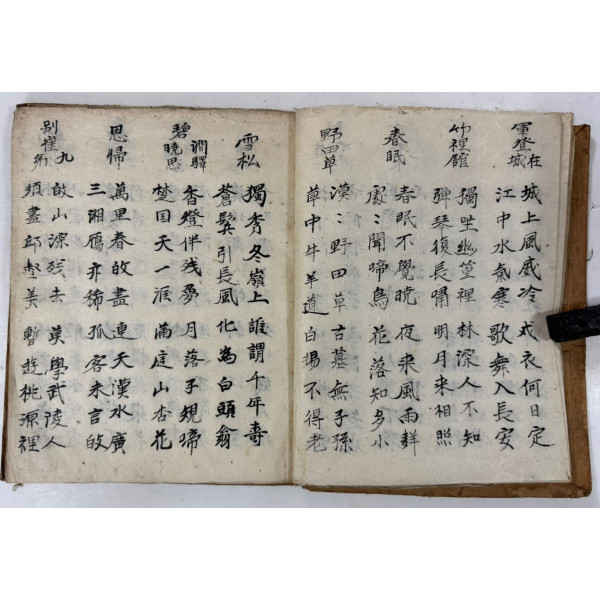 軍登城在
城上風威冷 戎衣何日定
江中水氣寒 歌舞入長安
竹裡館
獨坐幽篁裡 林深人不知
彈琴復長嘯 明月来相照
春眠
春眠不覺曉 夜来風雨
處〻聞啼鳥 花落知多小
野田草
漠〻野田草 古墓無子孫
草中牛羊道 白楊不得老
雪松
獨秀冬嶺上 誰謂千年壽
蒼髯引長風 化為白頭翁
碧澗驛曉思
香燈伴残夢 月落子規啼
楚国天一涯 滿庭山杏花
思帰
萬里春敀盡 連天漢水廣
三湘鴈亦稀 孤客未言敀
別崔九
敀山深残去 莫學武陵人
須盡邱壑美 暫遊桃源裡